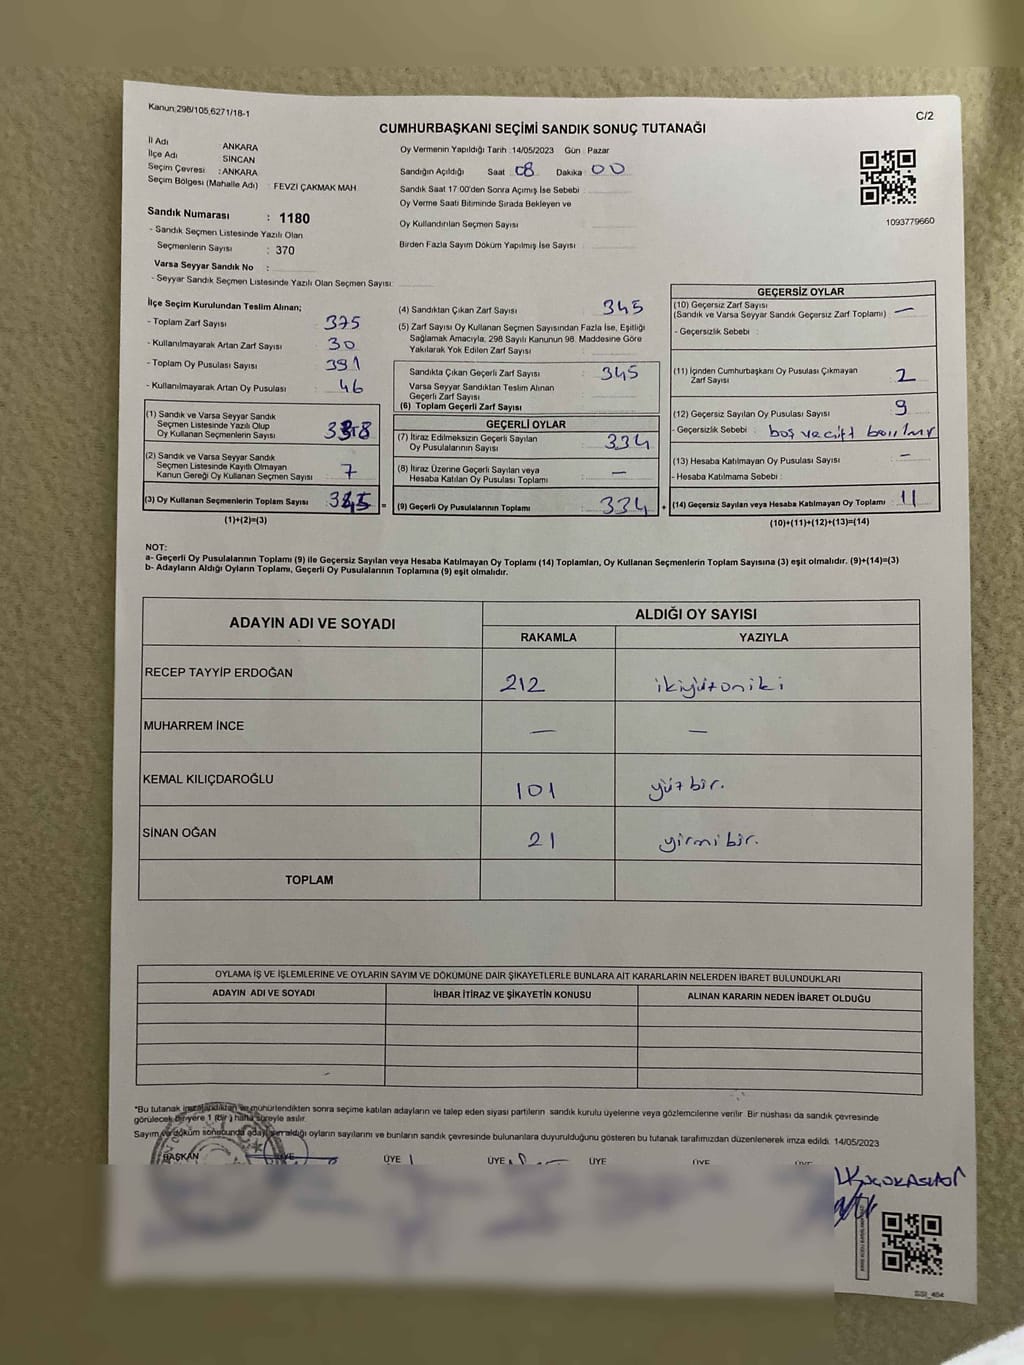 Kanun:298/105,6271/18-1
C/2
CUMHURBAŞKANI SEÇİMİ SANDIK SONUÇ TUTANAĞI
İl Adı : ANKARA
İlçe Adı : SİNCAN
Seçim Çevresi : ANKARA
Seçim Bölgesi (Mahalle Adı) : FEVZİ ÇAKMAK MAH.
Oy Vermenin Yapıldığı Tarih :14/05/2023 Gün : Pazar
Sandığın Açıldığı Saat : 08 Dakika : 00
Sandık Saat 17:00'den Sonra Açımış İse Sebebi :
Oy Verme Saati Bitiminde Sırada Bekleyen ve
Oy Kullandırılan Seçmen Sayısı :
Birden Fazla Sayım Döküm Yapılmış İse Sayısı :
1093779660
Sandık Numarası : 1180
- Sandık Seçmen Listesinde Yazılı Olan
Seçmenlerin Sayısı : 370
Varsa Seyyar Sandık No :
- Seyyar Sandık Seçmen Listesinde Yazılı Olan Seçmen Sayısı:
İlçe Seçim Kurulundan Teslim Alınan;
- Toplam Zarf Sayısı : 375
- Kullanılmayarak Artan Zarf Sayısı : 30
- Toplam Oy Pusulası Sayısı : 391
- Kullanılmayarak Artan Oy Pusulası : 46
(1) Sandık ve Varsa Seyyar Sandık
Seçmen Listesinde Yazılı Olup
Oy Kullanan Seçmenlerin Sayısı :
(2) Sandık ve Varsa Seyyar Sandık
Seçmen Listesinde Kayıtlı Olmayan
Kanun Gereği Oy Kullanan Seçmen Sayısı : 7
(3) Oy Kullanan Seçmenlerin Toplam Sayısı : 345 =
(1)+(2)=(3)
(4) Sandıktan Çıkan Zarf Sayısı : 345
(5) Zarf Sayısı Oy Kullanan Seçmen Sayısından Fazla İse, Eşitliği
Sağlamak Amacıyla; 298 Sayılı Kanunun 98. Maddesine Göre
Yakılarak Yok Edilen Zarf Sayısı :
Sandıkta Çıkan Geçerli Zarf Sayısı : 345
Varsa Seyyar Sandıktan Teslim Alınan
Geçerli Zarf Sayısı :
(6) Toplam Geçerli Zarf Sayısı :
GEÇERLİ OYLAR
(7) İtiraz Edilmeksizin Geçerli Sayılan
Oy Pusulalarının Sayısı : 334
(8) İtiraz Üzerine Geçerli Sayılan veya
Hesaba Katılan Oy Pusulası Toplamı : —
(9) Geçerli Oy Pusulalarının Toplamı : 334 +
GEÇERSİZ OYLAR
(10) Geçersiz Zarf Sayısı
(Sandık ve Varsa Seyyar Sandık Geçersiz Zarf Toplamı) : —
- Geçersizlik Sebebi :
(11) İçinden Cumhurbaşkanı Oy Pusulası Çıkmayan
Zarf Sayısı : 2
(12) Geçersiz Sayılan Oy Pusulası Sayısı : 9
- Geçersizlik Sebebi : boş ve çift
(13) Hesaba Katılmayan Oy Pusulası Sayısı : —
- Hesaba Katılmama Sebebi :
(14) Geçersiz Sayılan veya Hesaba Katılmayan Oy Toplamı : 11
(10)+(11)+(12)+(13)=(14)
NOT:
a- Geçerli Oy Pusulalarının Toplamı (9) ile Geçersiz Sayılan veya Hesaba Katılmayan Oy Toplamı (14) Toplamları, Oy Kullanan Seçmenlerin Toplam Sayısına (3) eşit olmalıdır. (9)+(14)=(3)
b- Adayların Aldığı Oyların Toplamı, Geçerli Oy Pusulalarının Toplamına (9) eşit olmalıdır.
ADAYIN ADI VE SOYADI
ALDIĞI OY SAYISI
RAKAMLA YAZIYLA
RECEP TAYYİP ERDOĞAN 212 ikiyüzoniki
MUHARREM İNCE — —
KEMAL KILIÇDAROĞLU 101 yüzbir.
SİNAN OĞAN 21 yirmibir.
TOPLAM
OYLAMA İŞ VE İŞLEMLERİNE VE OYLARIN SAYIM VE DÖKÜMÜNE DAİR ŞİKAYETLERLE BUNLARA AİT KARARLARIN NELERDEN İBARET BULUNDUKLARI
ADAYIN ADI VE SOYADI İHBAR İTİRAZ VE ŞİKAYETİN KONUSU ALINAN KARARIN NEDEN İBARET OLDUĞU
*Bu tutanak imzalandıktan ve mühürlendikten sonra seçime katılan adayların ve talep eden siyasi partilerin sandık kurulu üyelerine veya gözlemcilerine verilir. Bir nüshası da sandık çevresinde
görülecek bir yere 1 (bir) hafta süreyle asılır.
Sayım ve döküm sonucunda adayların aldığı oyların sayılarını ve bunların sandık çevresinde bulunanlara duyurulduğunu gösteren bu tutanak tarafımızdan düzenlenerek imza edildi. 14/05/2023
BAŞKAN ÜYE ÜYE ÜYE ÜYE ÜYE ÜYE
SSI_404